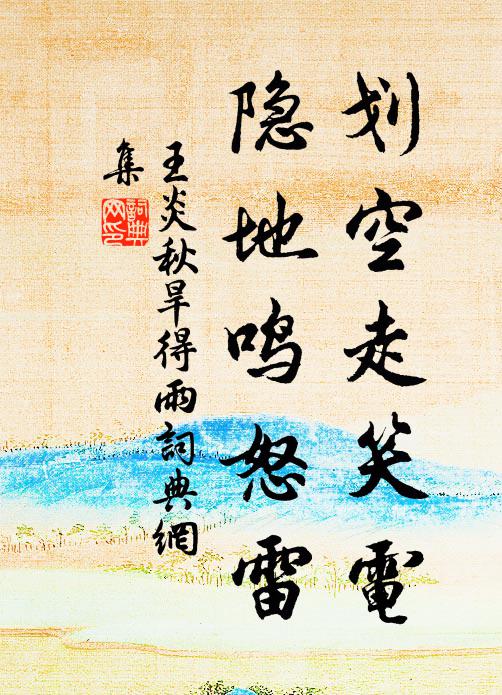 划空走笑電
隐地鸣怒雷
王炎秋旱得雨詞典網
集
詞典
网印